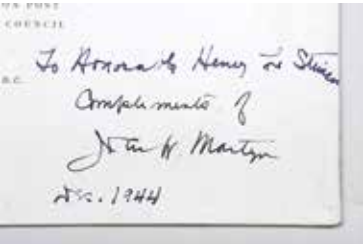 ON POST
COUNCIL
D.C.
To Honorable Henry L. Stimson
Compliments of
John W. Martyn
Dec. 1944